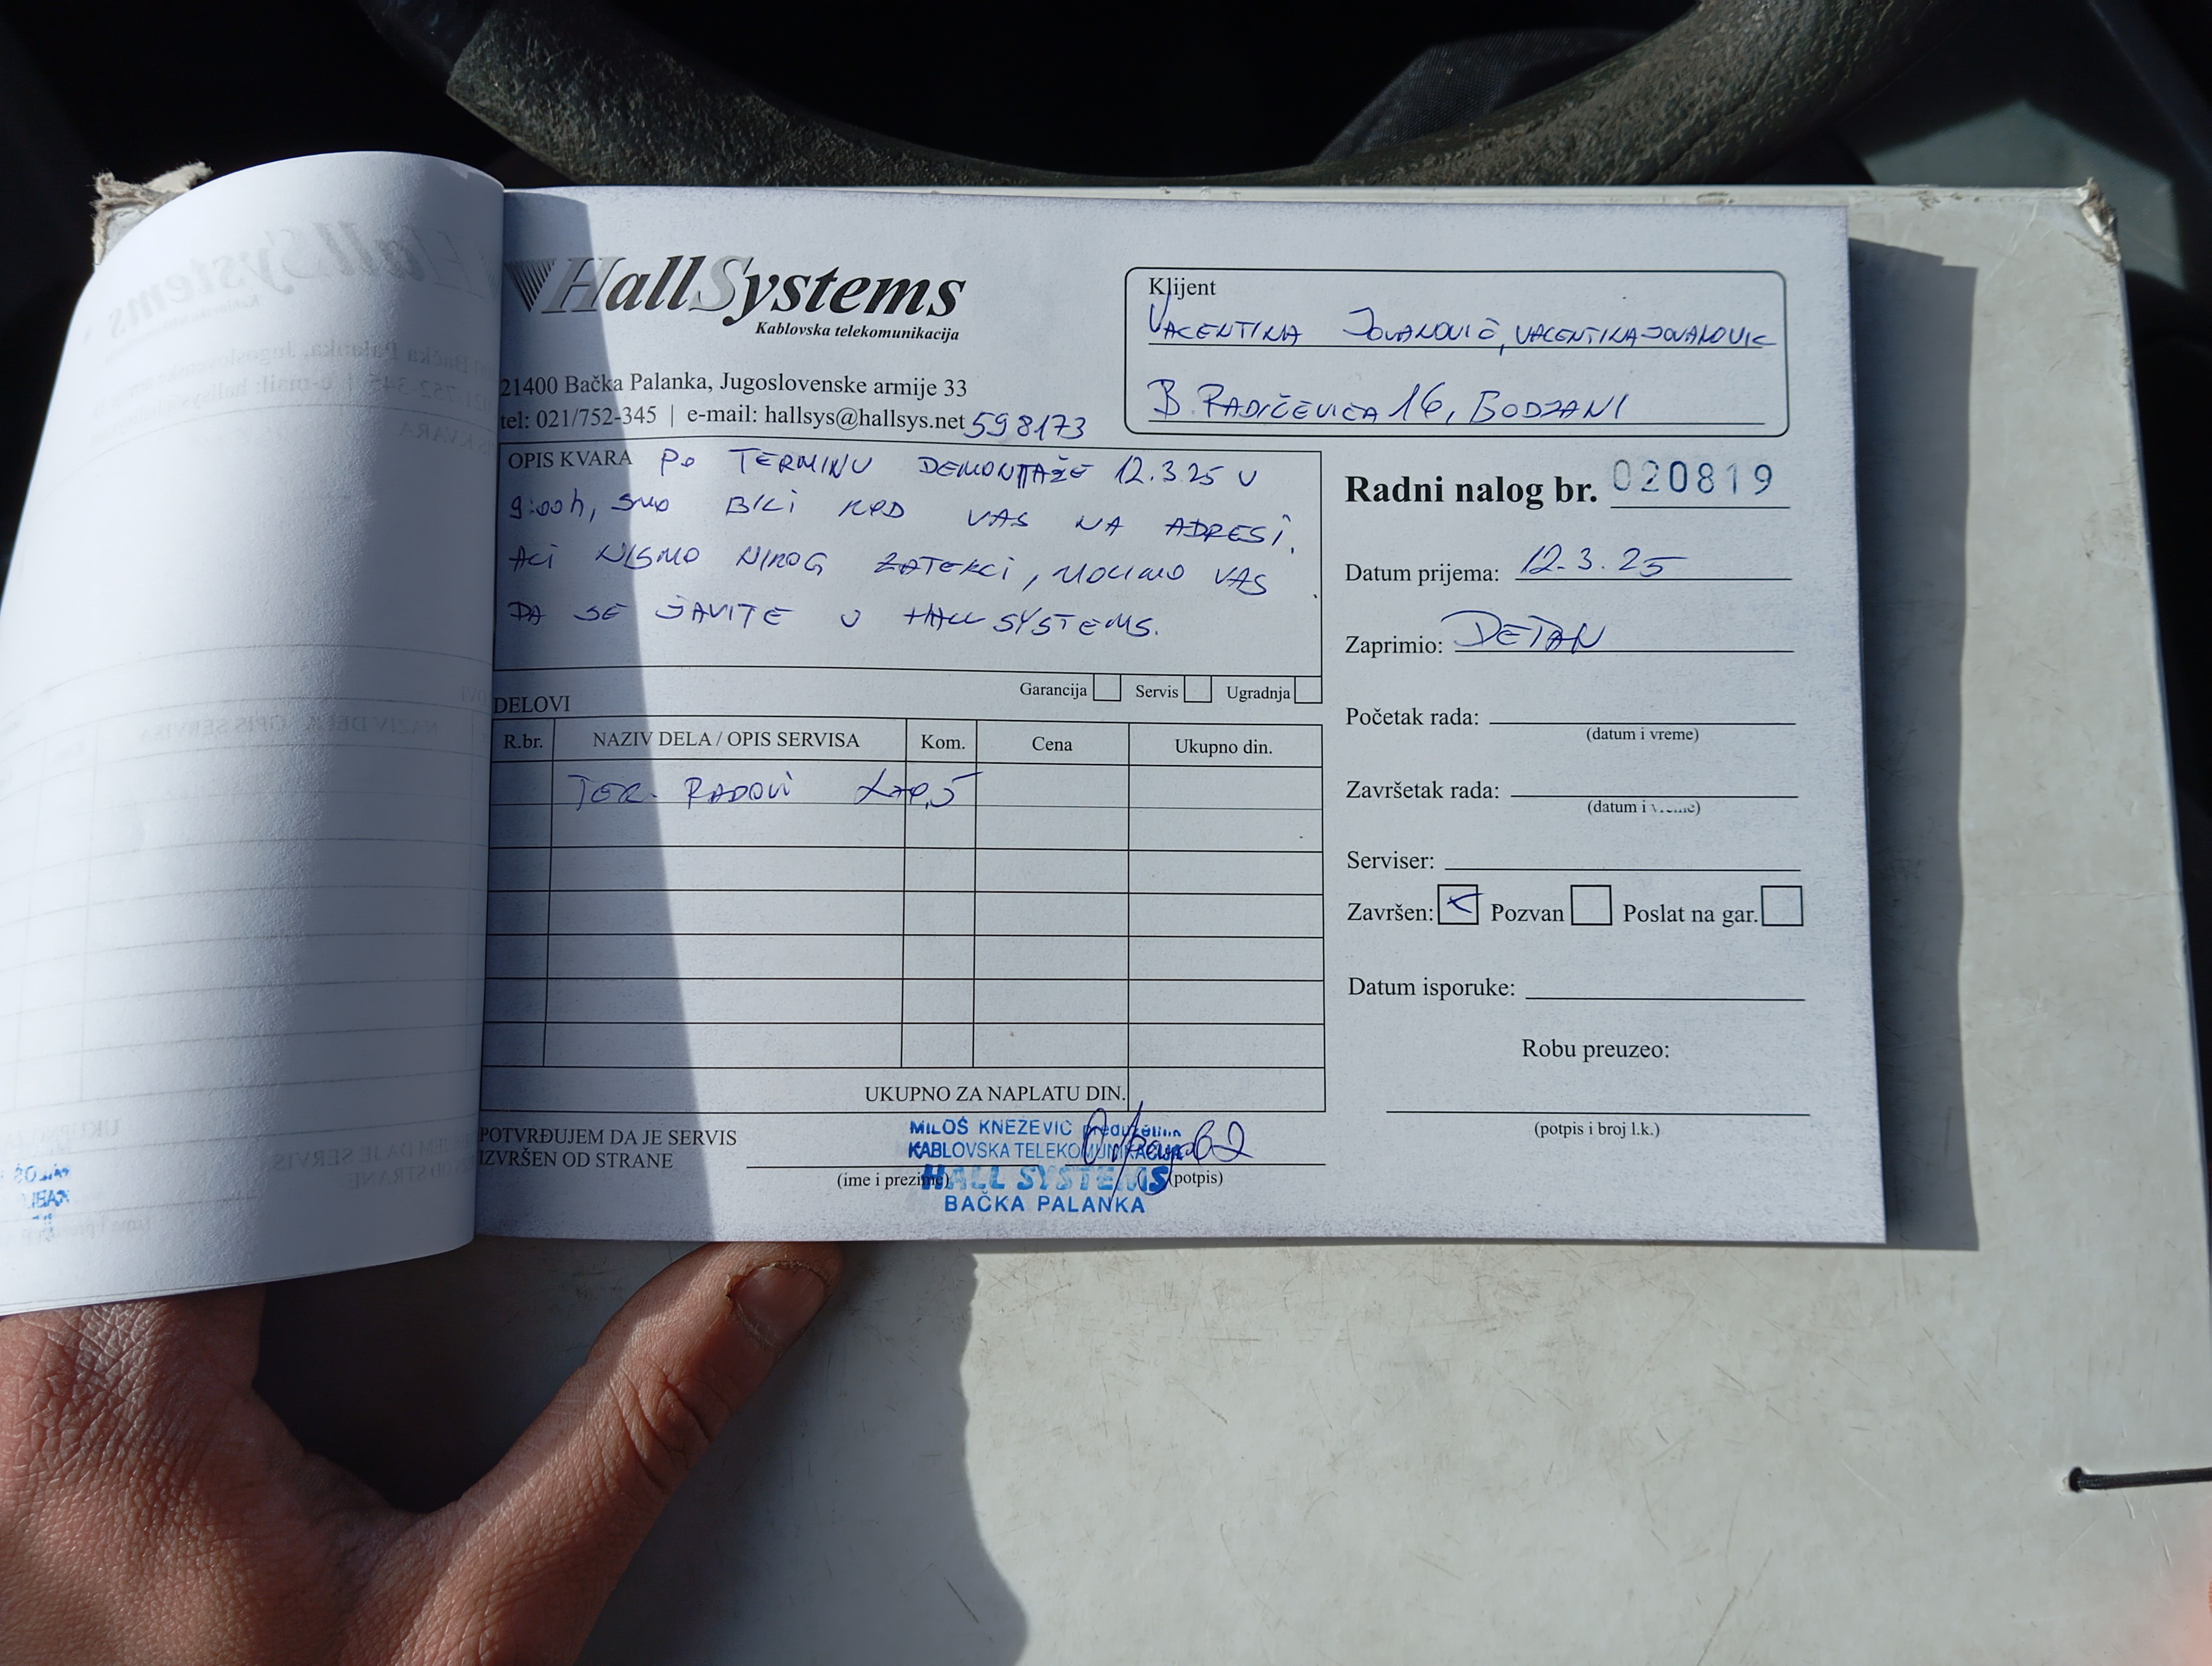 HallSystems
Kablovska telekomunikacija
21400 Bačka Palanka, Jugoslovenske armije 33
tel: 021/752-345 | e-mail: hallsys@hallsys.net 598173
Klijent
VALENTINA JOVANOVIĆ, VALENTINAJOVANOVIC
B. RADIČEVIĆA 16, BOĐANI
OPIS KVARA PO TERMINU DEMONTAŽE 12.3.25 U
9:00h, SMO BILI KOD VAS NA ADRESI.
ALI NISMO NIKOG ZATEKLI, MOLIMO VAS
DA SE JAVITE U HALL SYSTEMS.
Garancija Servis Ugradnja
DELOVI
R.br. NAZIV DELA / OPIS SERVISA Kom. Cena Ukupno din.
TER. RADOVI
UKUPNO ZA NAPLATU DIN.
POTVRĐUJEM DA JE SERVIS
IZVRŠEN OD STRANE
(ime i prezime) (potpis)
MILOŠ KNEŽEVIĆ preduzetnik
KABLOVSKA TELEKOMUNIKACIJA
HALL SYSTEMS
BAČKA PALANKA
Radni nalog br. 020819
Datum prijema: 12.3.25
Zaprimio: DEJAN
Početak rada:
(datum i vreme)
Završetak rada:
(datum i vreme)
Serviser:
Završen: Pozvan Poslat na gar.
Datum isporuke:
Robu preuzeo:
(potpis i broj l.k.)